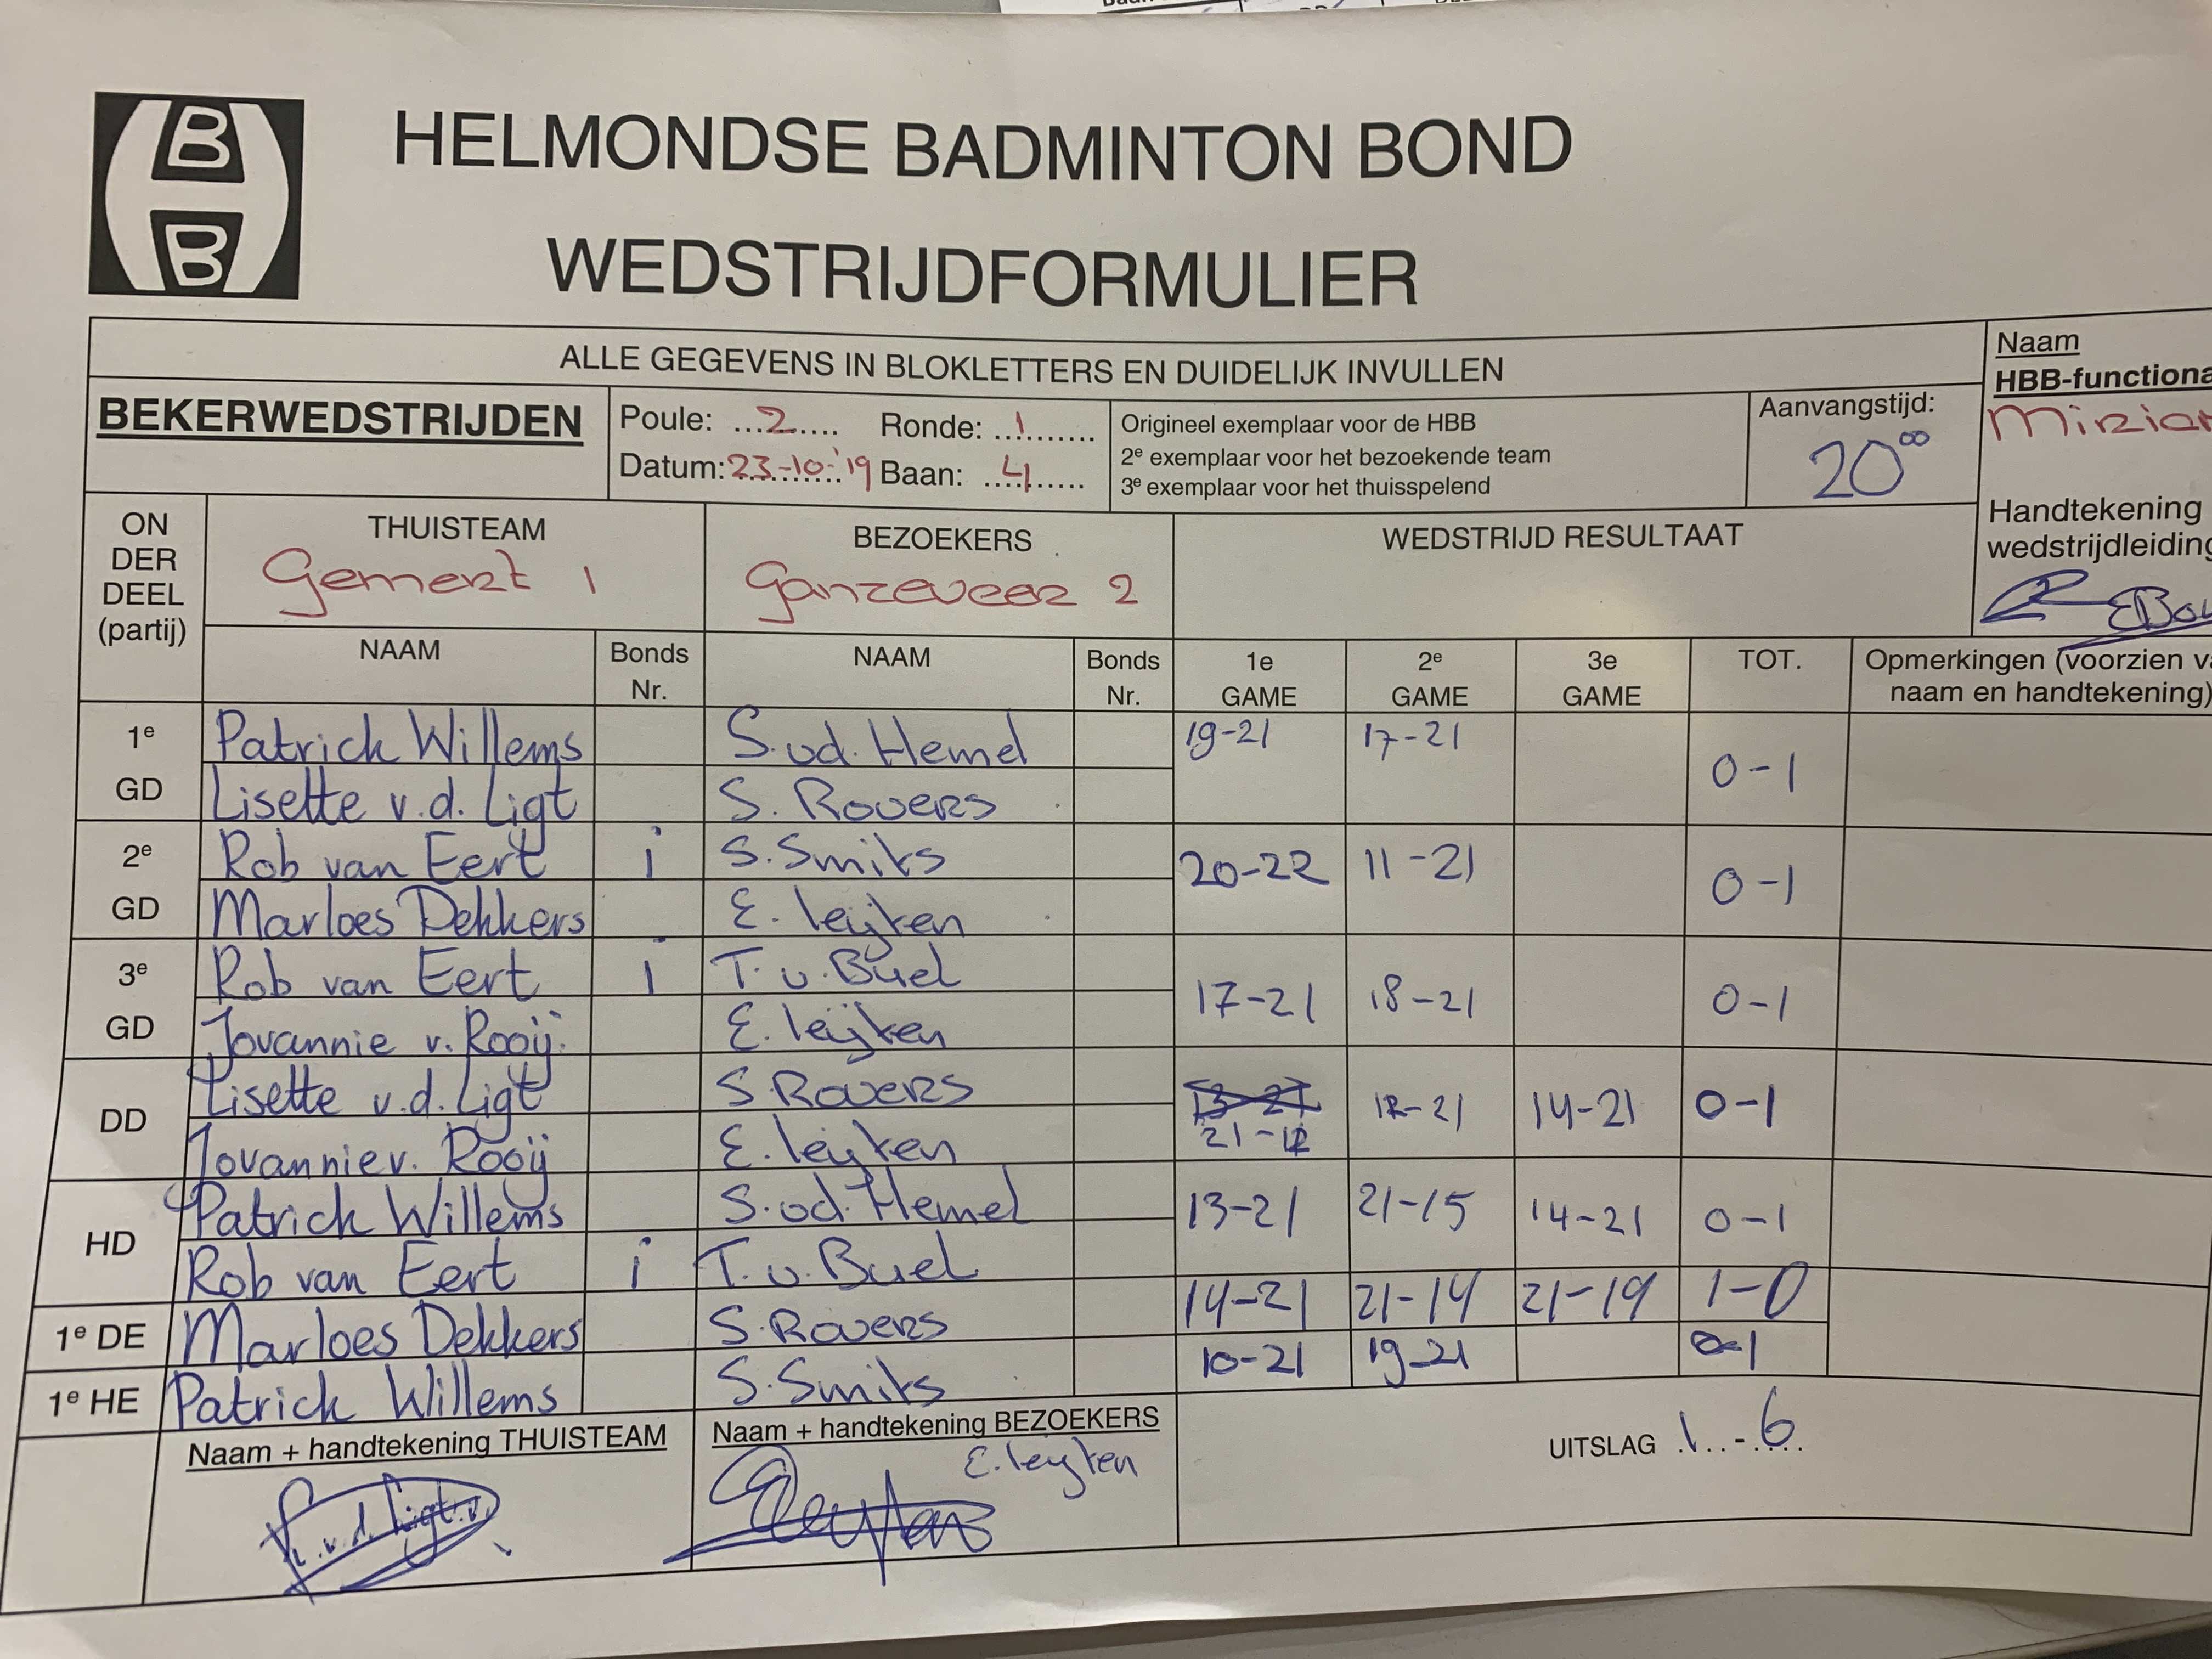 B
B
HELMONDSE BADMINTON BOND
WEDSTRIJDFORMULIER
ALLE GEGEVENS IN BLOKLETTERS EN DUIDELIJK INVULLEN
Naam
HBB-functiona
BEKERWEDSTRIJDEN
Poule: ...2..... Ronde: ..1........
Datum: 23-10-'19 Baan: ..4........
Origineel exemplaar voor de HBB
2e exemplaar voor het bezoekende team
3e exemplaar voor het thuisspelend
Aanvangstijd:
20 00
Mirian
Handtekening
wedstrijdleiding
EBou
ON DER DEEL (partij)
THUISTEAM
Gemert 1
BEZOEKERS
Ganzeveer 2
WEDSTRIJD RESULTAAT
NAAM Bonds Nr. NAAM Bonds Nr. 1e GAME 2e GAME 3e GAME TOT. Opmerkingen (voorzien va
naam en handtekening)
1e Patrick Willems S.vd. Hemel 19-21 17-21 0-1
GD Lisette v.d. Ligt S. Rovers
2e Rob van Eert i S. Smits 20-22 11-21 0-1
GD Marloes Dekkers E. leijten
3e Rob van Eert i T. v. Buel 17-21 18-21 0-1
GD Jovannie v. Rooij. E. leijten
DD Lisette v.d. Ligt S. Rovers 12-21 14-21 0-1
Jovannie v. Rooij E. leijten
HD Patrick Willems S. vd. Hemel 13-21 21-15 14-21 0-1
Rob van Eert i T. v. Buel
1e DE Marloes Dekkers S. Rovers 14-21 21-14 21-19 1-0
1e HE Patrick Willems S. Smits 10-21 19-21 0-1
Naam + handtekening THUISTEAM
L. v.d. Ligt
Naam + handtekening BEZOEKERS
E. leyten
UITSLAG .1..-.6...